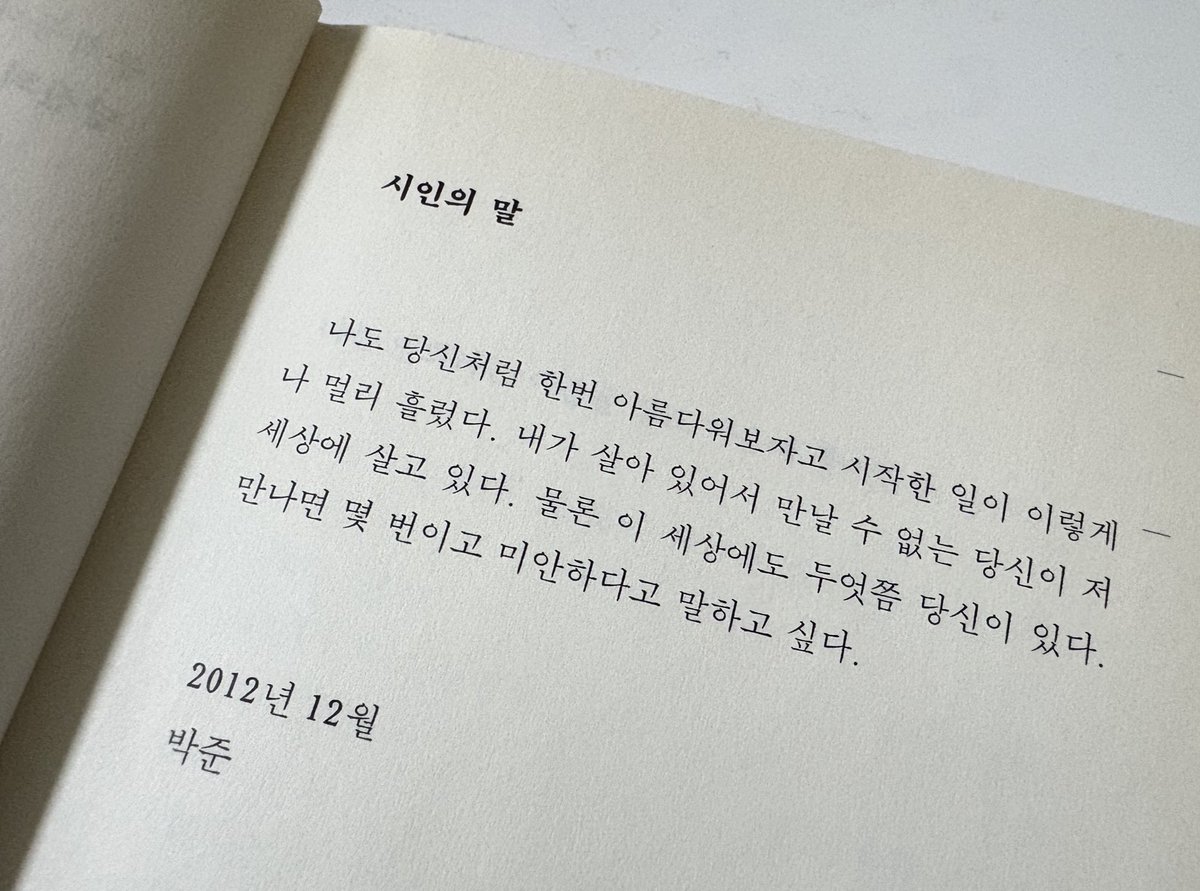 시인의 말
나도 당신처럼 한번 아름다워보자고 시작한 일이 이렇게
나 멀리 흘렀다. 내가 살아 있어서 만날 수 없는 당신이 저
세상에 살고 있다. 물론 이 세상에도 두엇쯤 당신이 있다.
만나면 몇 번이고 미안하다고 말하고 싶다.
2012년 12월
박준